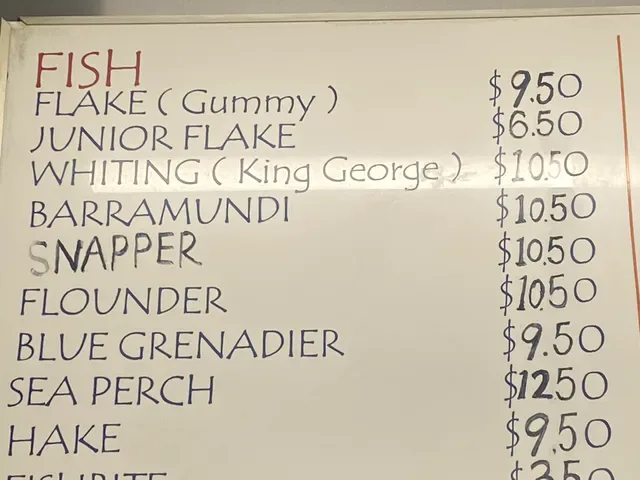 FISH
FLAKE ( Gummy ) $9.50
JUNIOR FLAKE $6.50
WHITING ( King George ) $10.50
BARRAMUNDI $10.50
SNAPPER $10.50
FLOUNDER $10.50
BLUE GRENADIER $9.50
SEA PERCH $1250
HAKE $9.50
$3.50